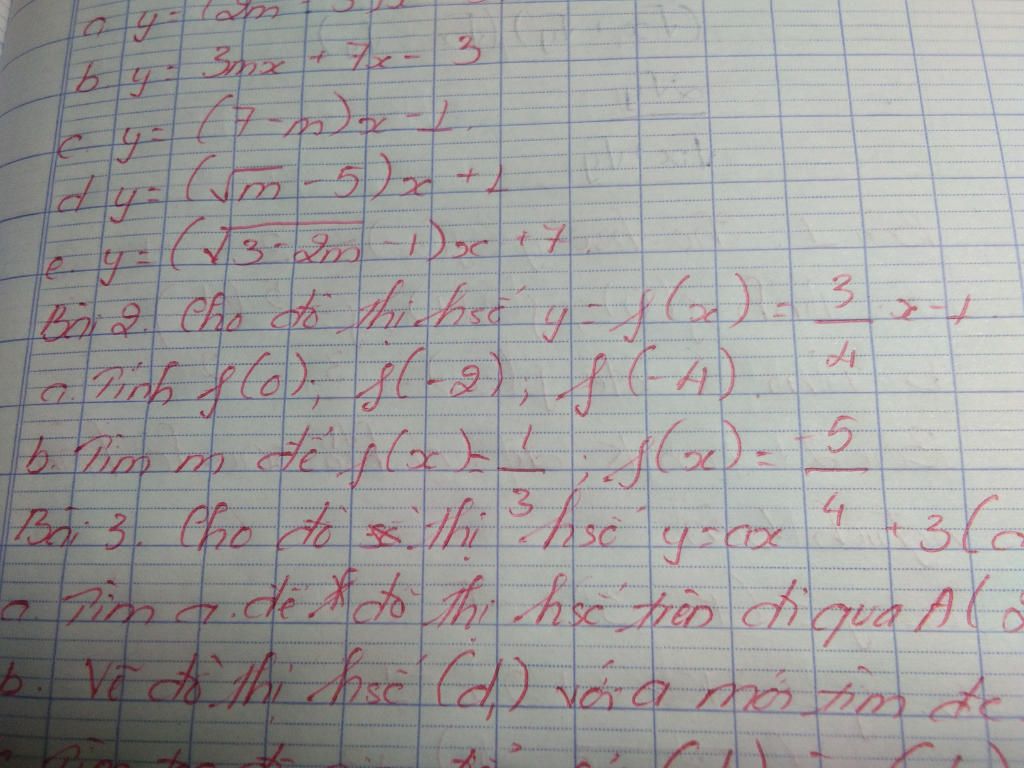 a y = (2m - 3)x
b y = 3mx + 7x - 3
c. y = (7 - m)x - 1
d y = (√m - 5)x + 1
e. y = (√(3 - 2m) - 1)x + 7
Bài 2. Cho đồ thị hsố y = f(x) = 3/4 x - 1
a. Tính f(0); f(-2); f(-4)
b. Tìm m để f(x) = 1/3; f(x) = -5/4
Bài 3. Cho đồ thị hsố y = ax + 3 (
a. Tìm a. để đồ thị hsố trên đi qua A(
b. Vẽ đồ thị hsố (d₁) với a mới tìm đc